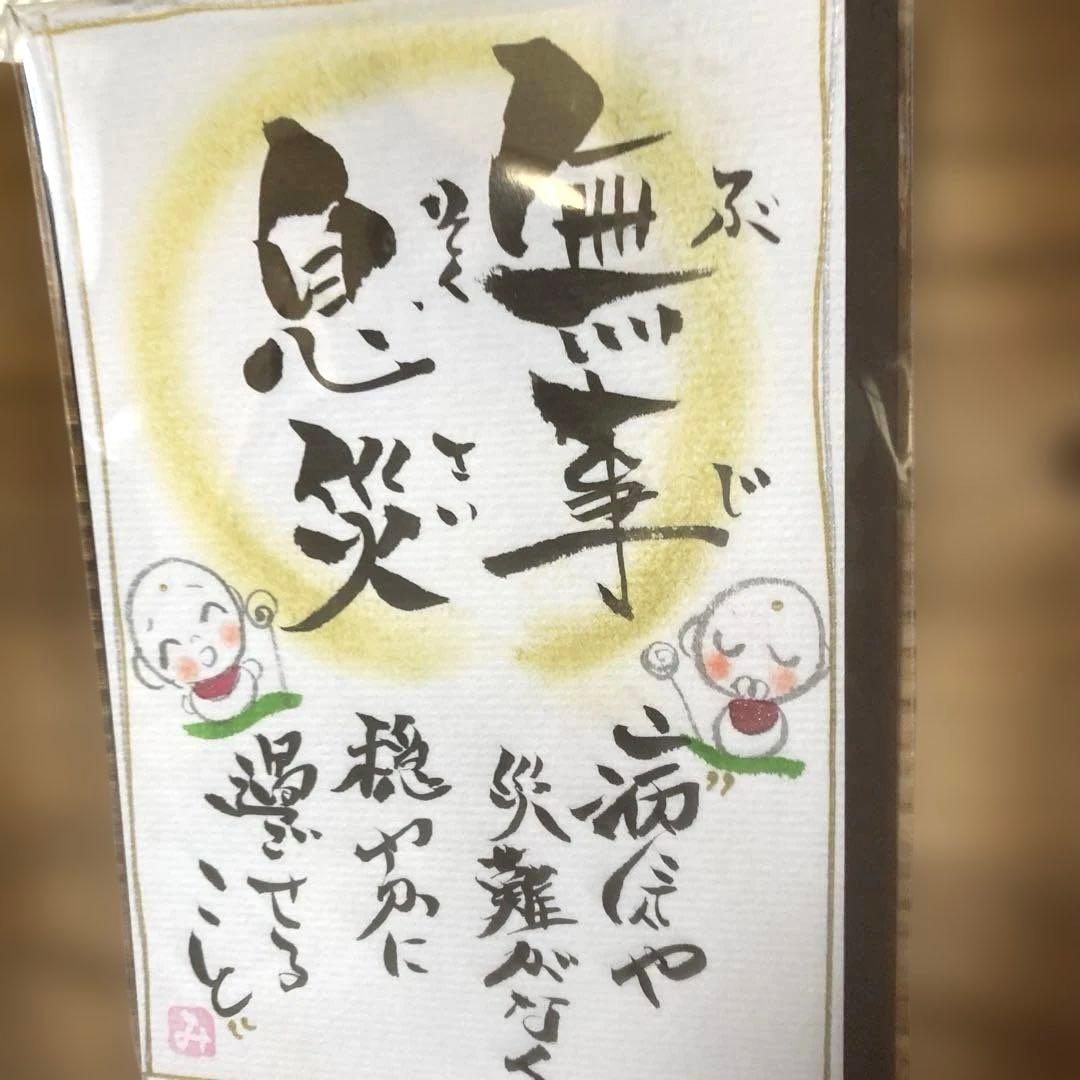 ぶじ
無事
そく
さい
息災
”病気や
災難がなく
穏やかに
過ごせる
こと”
み